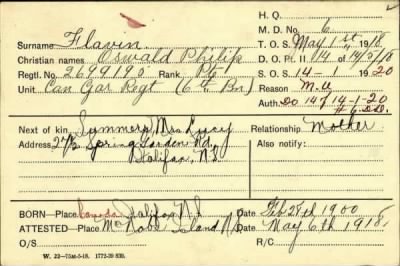 H. Q.
M. D. No. 6
Surname Flavin
T. O. S. May 1st 1918
Christian names Oswald Philip
D. O. Pt. II 114 of 14/5/18
Regtl. No. 2699195 Rank Pte
S. O. S. 14-1-1920
Unit Can Gar Regt (6th Bn)
Reason M.U
Auth. DO 147 14-1-20
#6 D.D.
Next of kin Symmery Mrs Lucy Relationship Mother
Address Spring Garden Rd, Also notify:
Halifax, N.S
BORN—Place Canada Halifax N.S Date Feb 28th 1900
ATTESTED—Place McNabs Island N.S. Date May 6th 1918
O/S R/C
W. 22—75M-5-18. 1772-39 839.